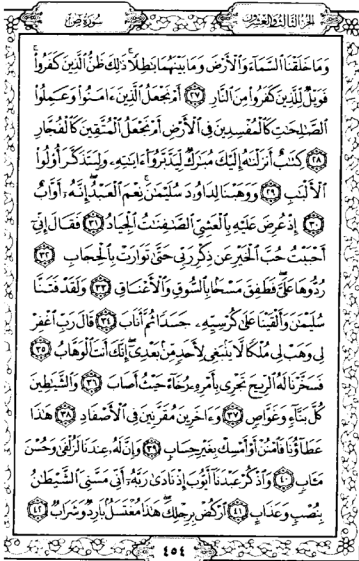 الجزء الثالث والعشرون سورة ص
وَمَا خَلَقْنَا السَّمَاءَ وَالْأَرْضَ وَمَا بَيْنَهُمَا بَٰطِلًا ذَٰلِكَ ظَنُّ الَّذِينَ كَفَرُوا
فَوَيْلٌ لِّلَّذِينَ كَفَرُوا مِنَ النَّارِ ٢٧ أَمْ نَجْعَلُ الَّذِينَ ءَامَنُوا وَعَمِلُوا
الصَّٰلِحَٰتِ كَالْمُفْسِدِينَ فِي الْأَرْضِ أَمْ نَجْعَلُ الْمُتَّقِينَ كَالْفُجَّارِ
٢٨ كِتَٰبٌ أَنزَلْنَٰهُ إِلَيْكَ مُبَٰرَكٌ لِّيَدَّبَّرُوا ءَايَٰتِهِ وَلِيَتَذَكَّرَ أُولُوا
الْأَلْبَٰبِ ٢٩ وَوَهَبْنَا لِدَاوُدَ سُلَيْمَٰنَ نِعْمَ الْعَبْدُ إِنَّهُ أَوَّابٌ
٣٠ إِذْ عُرِضَ عَلَيْهِ بِالْعَشِيِّ الصَّٰفِنَٰتُ الْجِيَادُ ٣١ فَقَالَ إِنِّي
أَحْبَبْتُ حُبَّ الْخَيْرِ عَن ذِكْرِ رَبِّي حَتَّىٰ تَوَارَتْ بِالْحِجَابِ ٣٢
رُدُّوهَا عَلَيَّ فَطَفِقَ مَسْحًا بِالسُّوقِ وَالْأَعْنَاقِ ٣٣ وَلَقَدْ فَتَنَّا
سُلَيْمَٰنَ وَأَلْقَيْنَا عَلَىٰ كُرْسِيِّهِ جَسَدًا ثُمَّ أَنَابَ ٣٤ قَالَ رَبِّ اغْفِرْ
لِي وَهَبْ لِي مُلْكًا لَّا يَنبَغِي لِأَحَدٍ مِّن بَعْدِي إِنَّكَ أَنتَ الْوَهَّابُ ٣٥
فَسَخَّرْنَا لَهُ الرِّيحَ تَجْرِي بِأَمْرِهِ رُخَاءً حَيْثُ أَصَابَ ٣٦ وَالشَّيَٰطِينَ
كُلَّ بَنَّاءٍ وَغَوَّاصٍ ٣٧ وَءَاخَرِينَ مُقَرَّنِينَ فِي الْأَصْفَادِ ٣٨ هَٰذَا
عَطَاؤُنَا فَامْنُنْ أَوْ أَمْسِكْ بِغَيْرِ حِسَابٍ ٣٩ وَإِنَّ لَهُ عِندَنَا لَزُلْفَىٰ وَحُسْنَ
مَـَٔابٍ ٤٠ وَاذْكُرْ عَبْدَنَا أَيُّوبَ إِذْ نَادَىٰ رَبَّهُ أَنِّي مَسَّنِيَ الشَّيْطَٰنُ
بِنُصْبٍ وَعَذَابٍ ٤١ ارْكُضْ بِرِجْلِكَ هَٰذَا مُغْتَسَلٌ بَارِدٌ وَشَرَابٌ ٤٢
٤٥٤